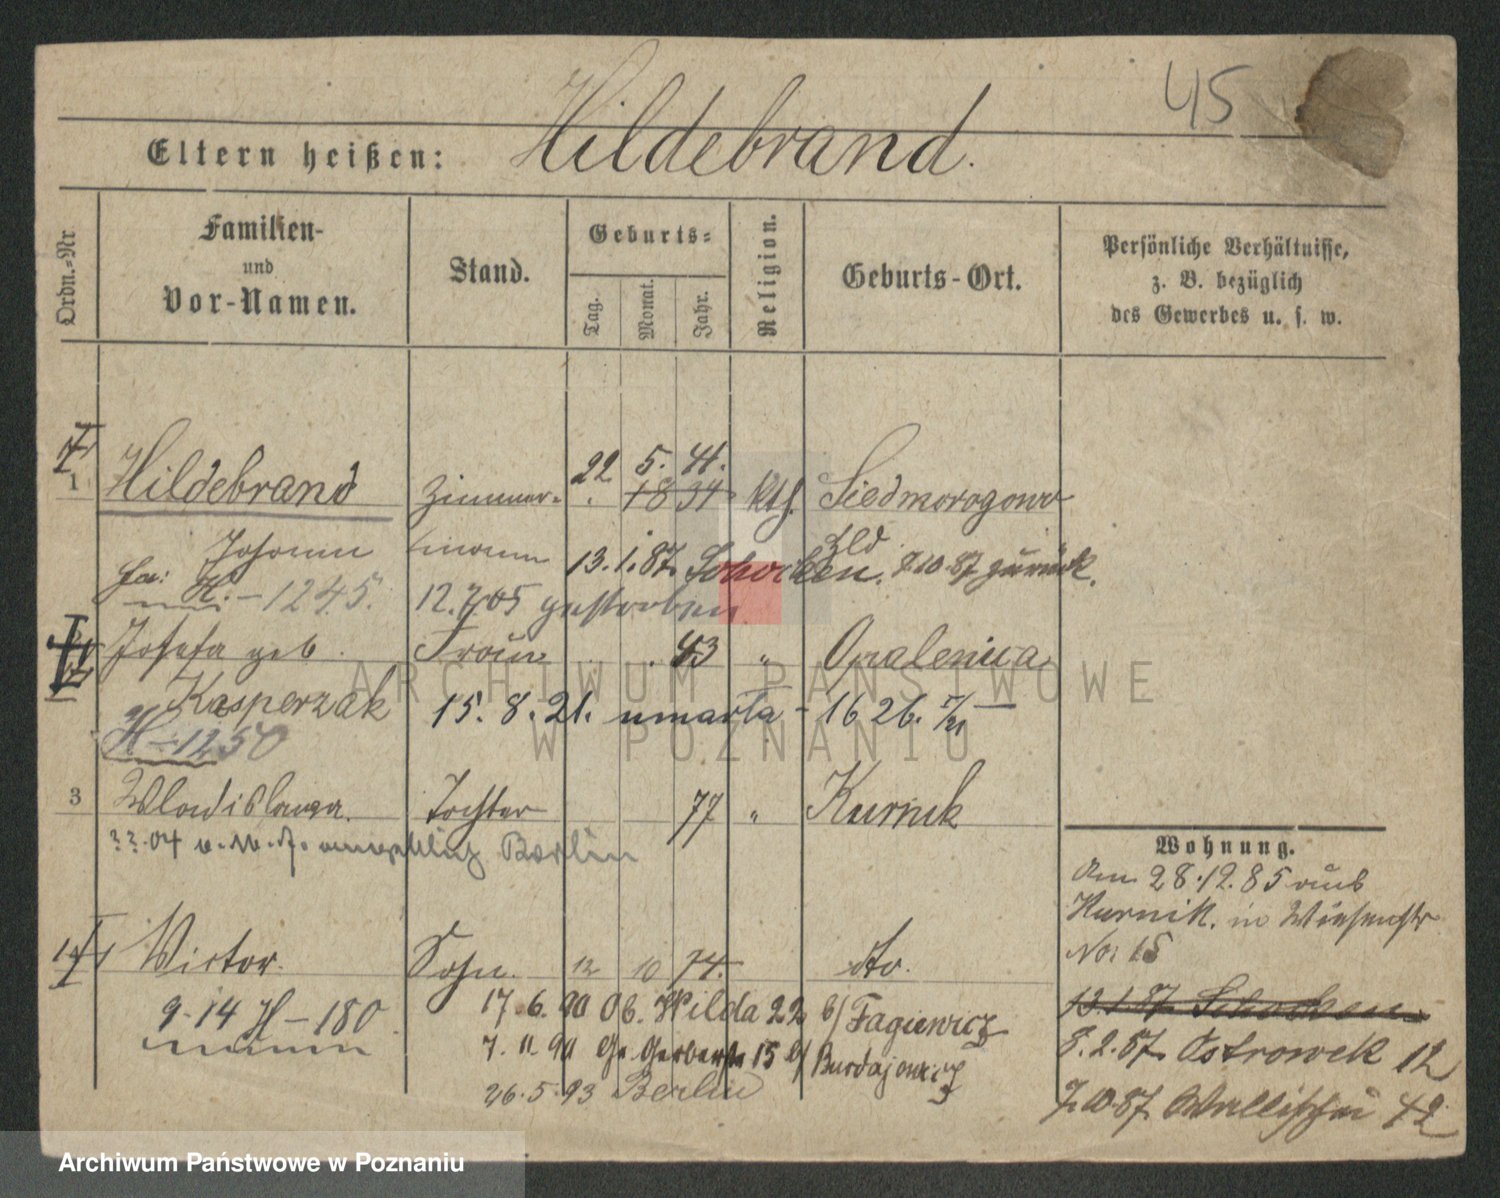 45
Eltern heißen: Hildebrand.
Ordn.=Nr
Familien-
und
Vor-Namen.
Stand.
Geburts=
Tag.
Monat.
Jahr.
Religion.
Geburts-Ort.
Persönliche Verhältnisse,
z. B. bezüglich
des Gewerbes u. s. w.
1 Hildebrand Zimmer- 22 5. 41. 1834 kth. Siedmorogowo
Johann mann 13.1.87. Schocken. 7.10.87 zurück.
H. - 1245. 12.7.05 gestorben
Josefa geb. Frau 43 " Opalenica
Kasperzak 15. 8. 21. umarła - 1626.
H - 1250
3 Wladislawa. Tochter 77 " Kurnik
04 Berlin
Victor. Sohn. 12 10 74. dto.
9-14 H - 180. 17.6.90 Ob. Wilda 22 b/ Fagiewicz
7.11.90 Gr. Gerberstr 15 b/ Burdajewicz
26.5.93 Berlin
Wohnung.
Am 28.12.85 aus
Kurnik. in Wiesenstr
No: 15
13.1.87 Schocken
8.2.87. Ostrowek 12
7.10.87. Wallischei 42
ARCHIWUM PAŃSTWOWE
W POZNANIU
Archiwum Państwowe w Poznaniu